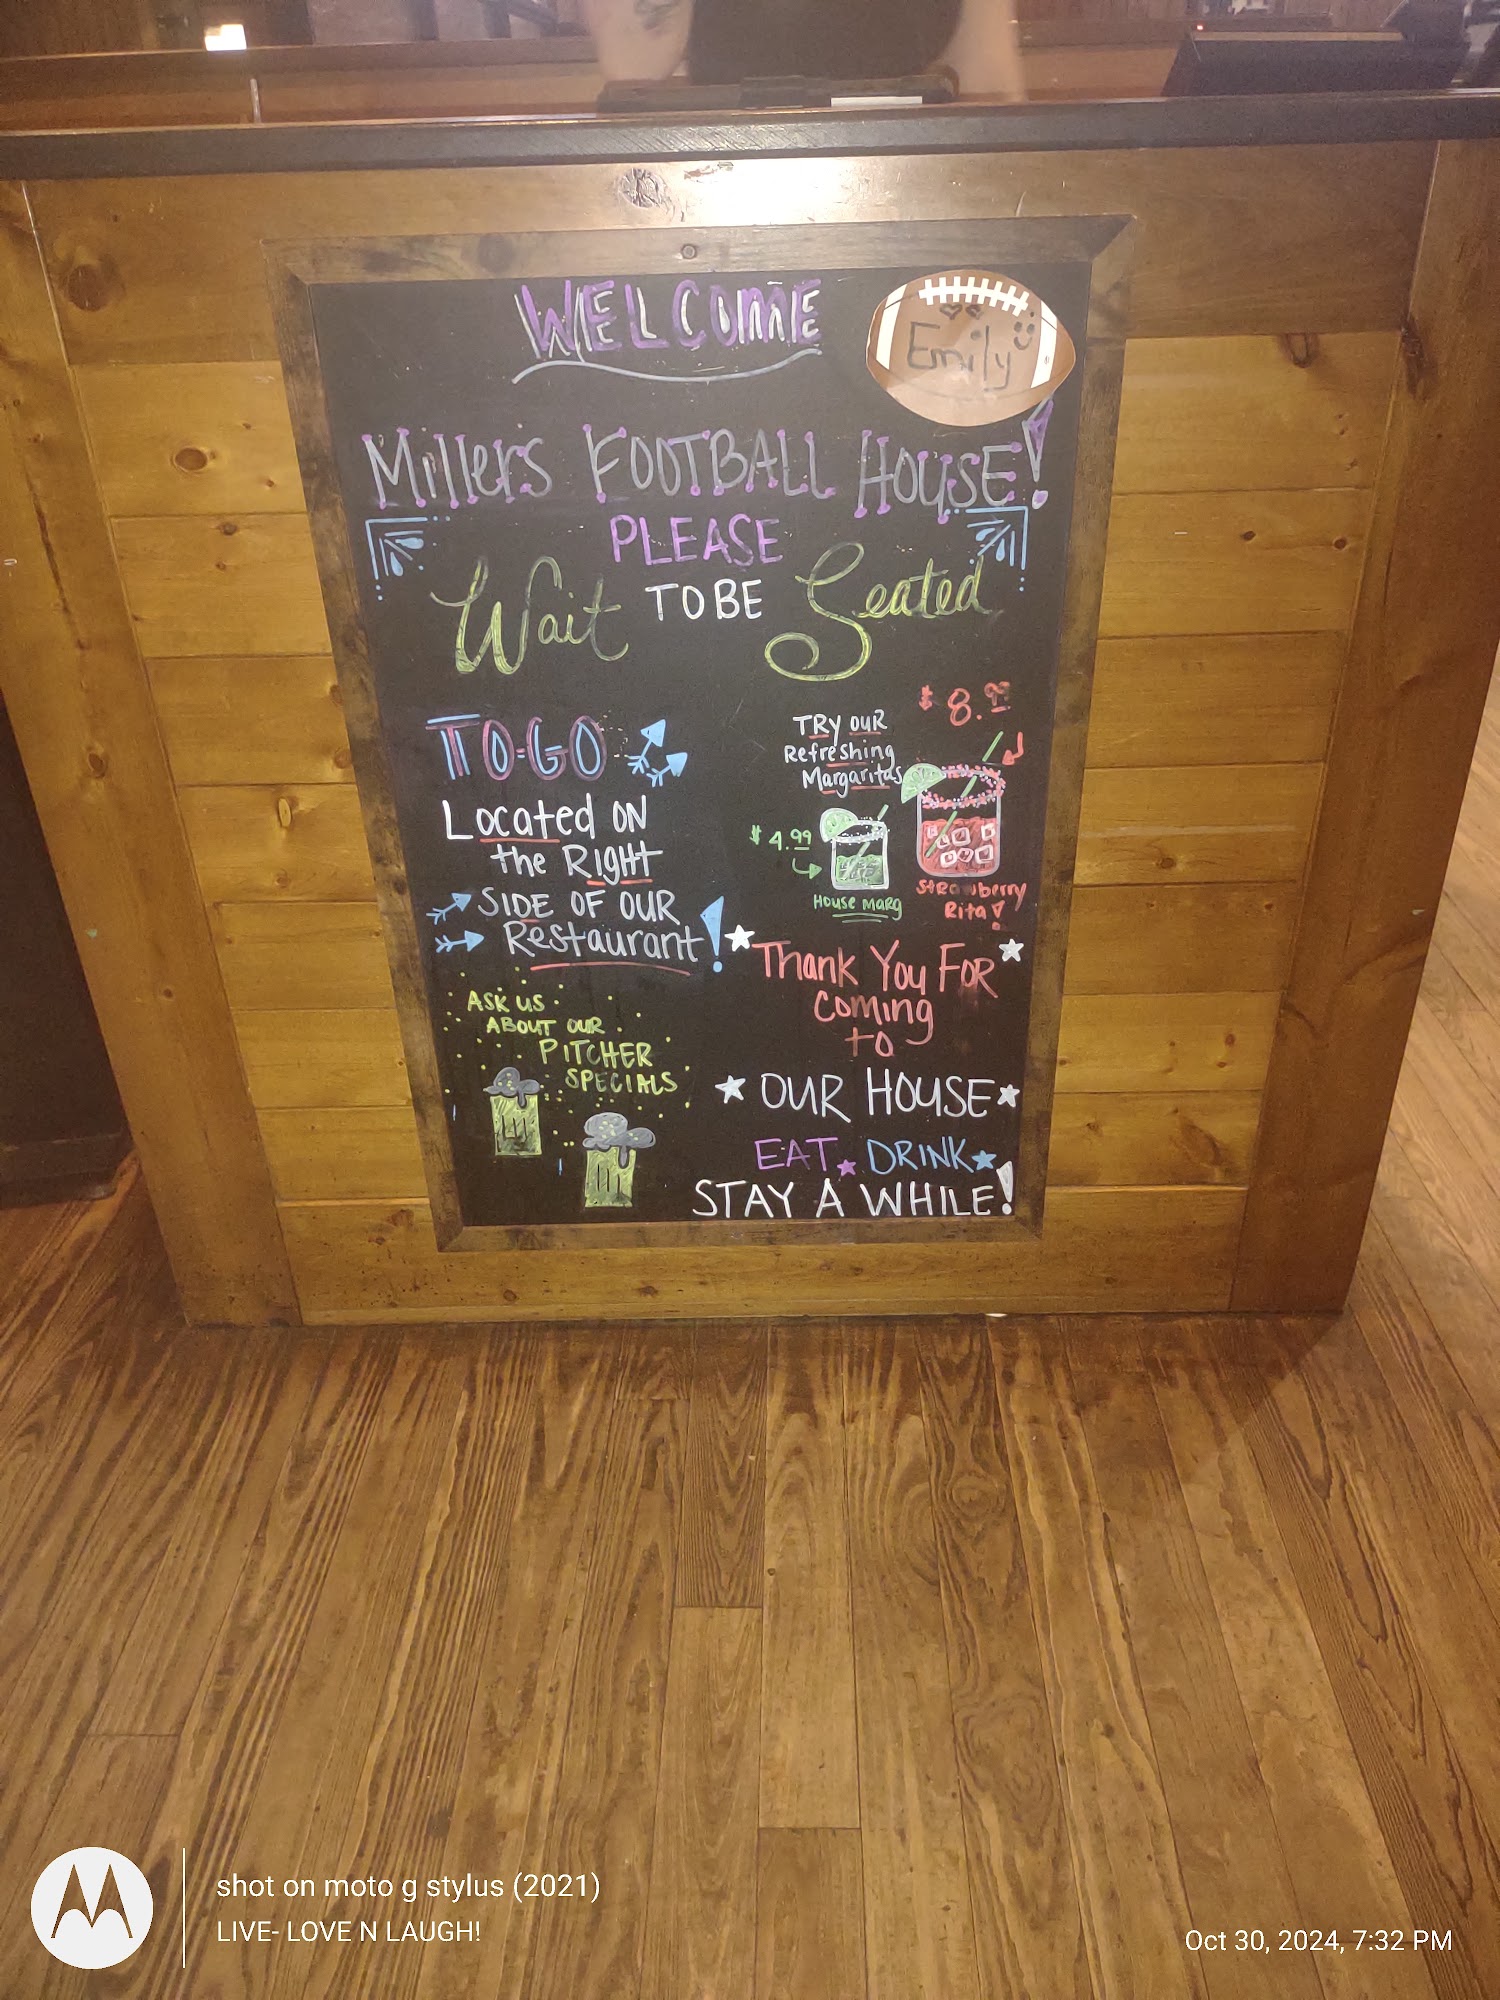 WELCOME
Emily
Millers FOOTBALL HOUSE!
PLEASE
Wait TO BE Seated
TO-GO
Located ON
the Right
SIDE OF OUR
Restaurant!
TRY OUR
Refreshing
Margaritas
$8.99
$4.99
HOUSE MARG
Strawberry
Rita!
ASK US
ABOUT OUR
PITCHER
SPECIALS
Thank You FOR
Coming
to
OUR HOUSE
EAT DRINK
STAY A WHILE!
shot on moto g stylus (2021)
LIVE- LOVE N LAUGH!
Oct 30, 2024, 7:32 PM